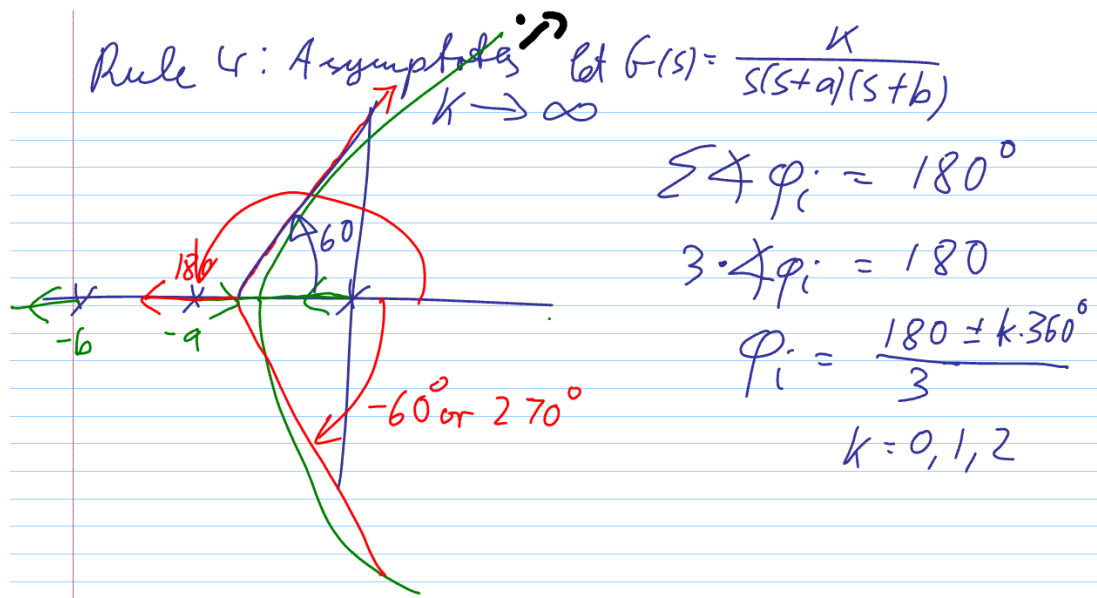 Rule 4: Asymptotes let G(s) = K / s(s+a)(s+b)
K → ∞
Σ∡φi = 180°
3·∡φi = 180
φi = 180 ± k·360° / 3
k = 0, 1, 2
60
180
-b
-a
-60° or 270°